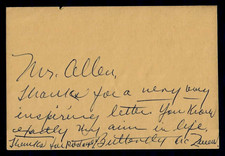 Mr. Allen,
Thanks for a very very
inspiring letter You Know
exactly my aim in life.
Thanks Butterfly Mc Queen